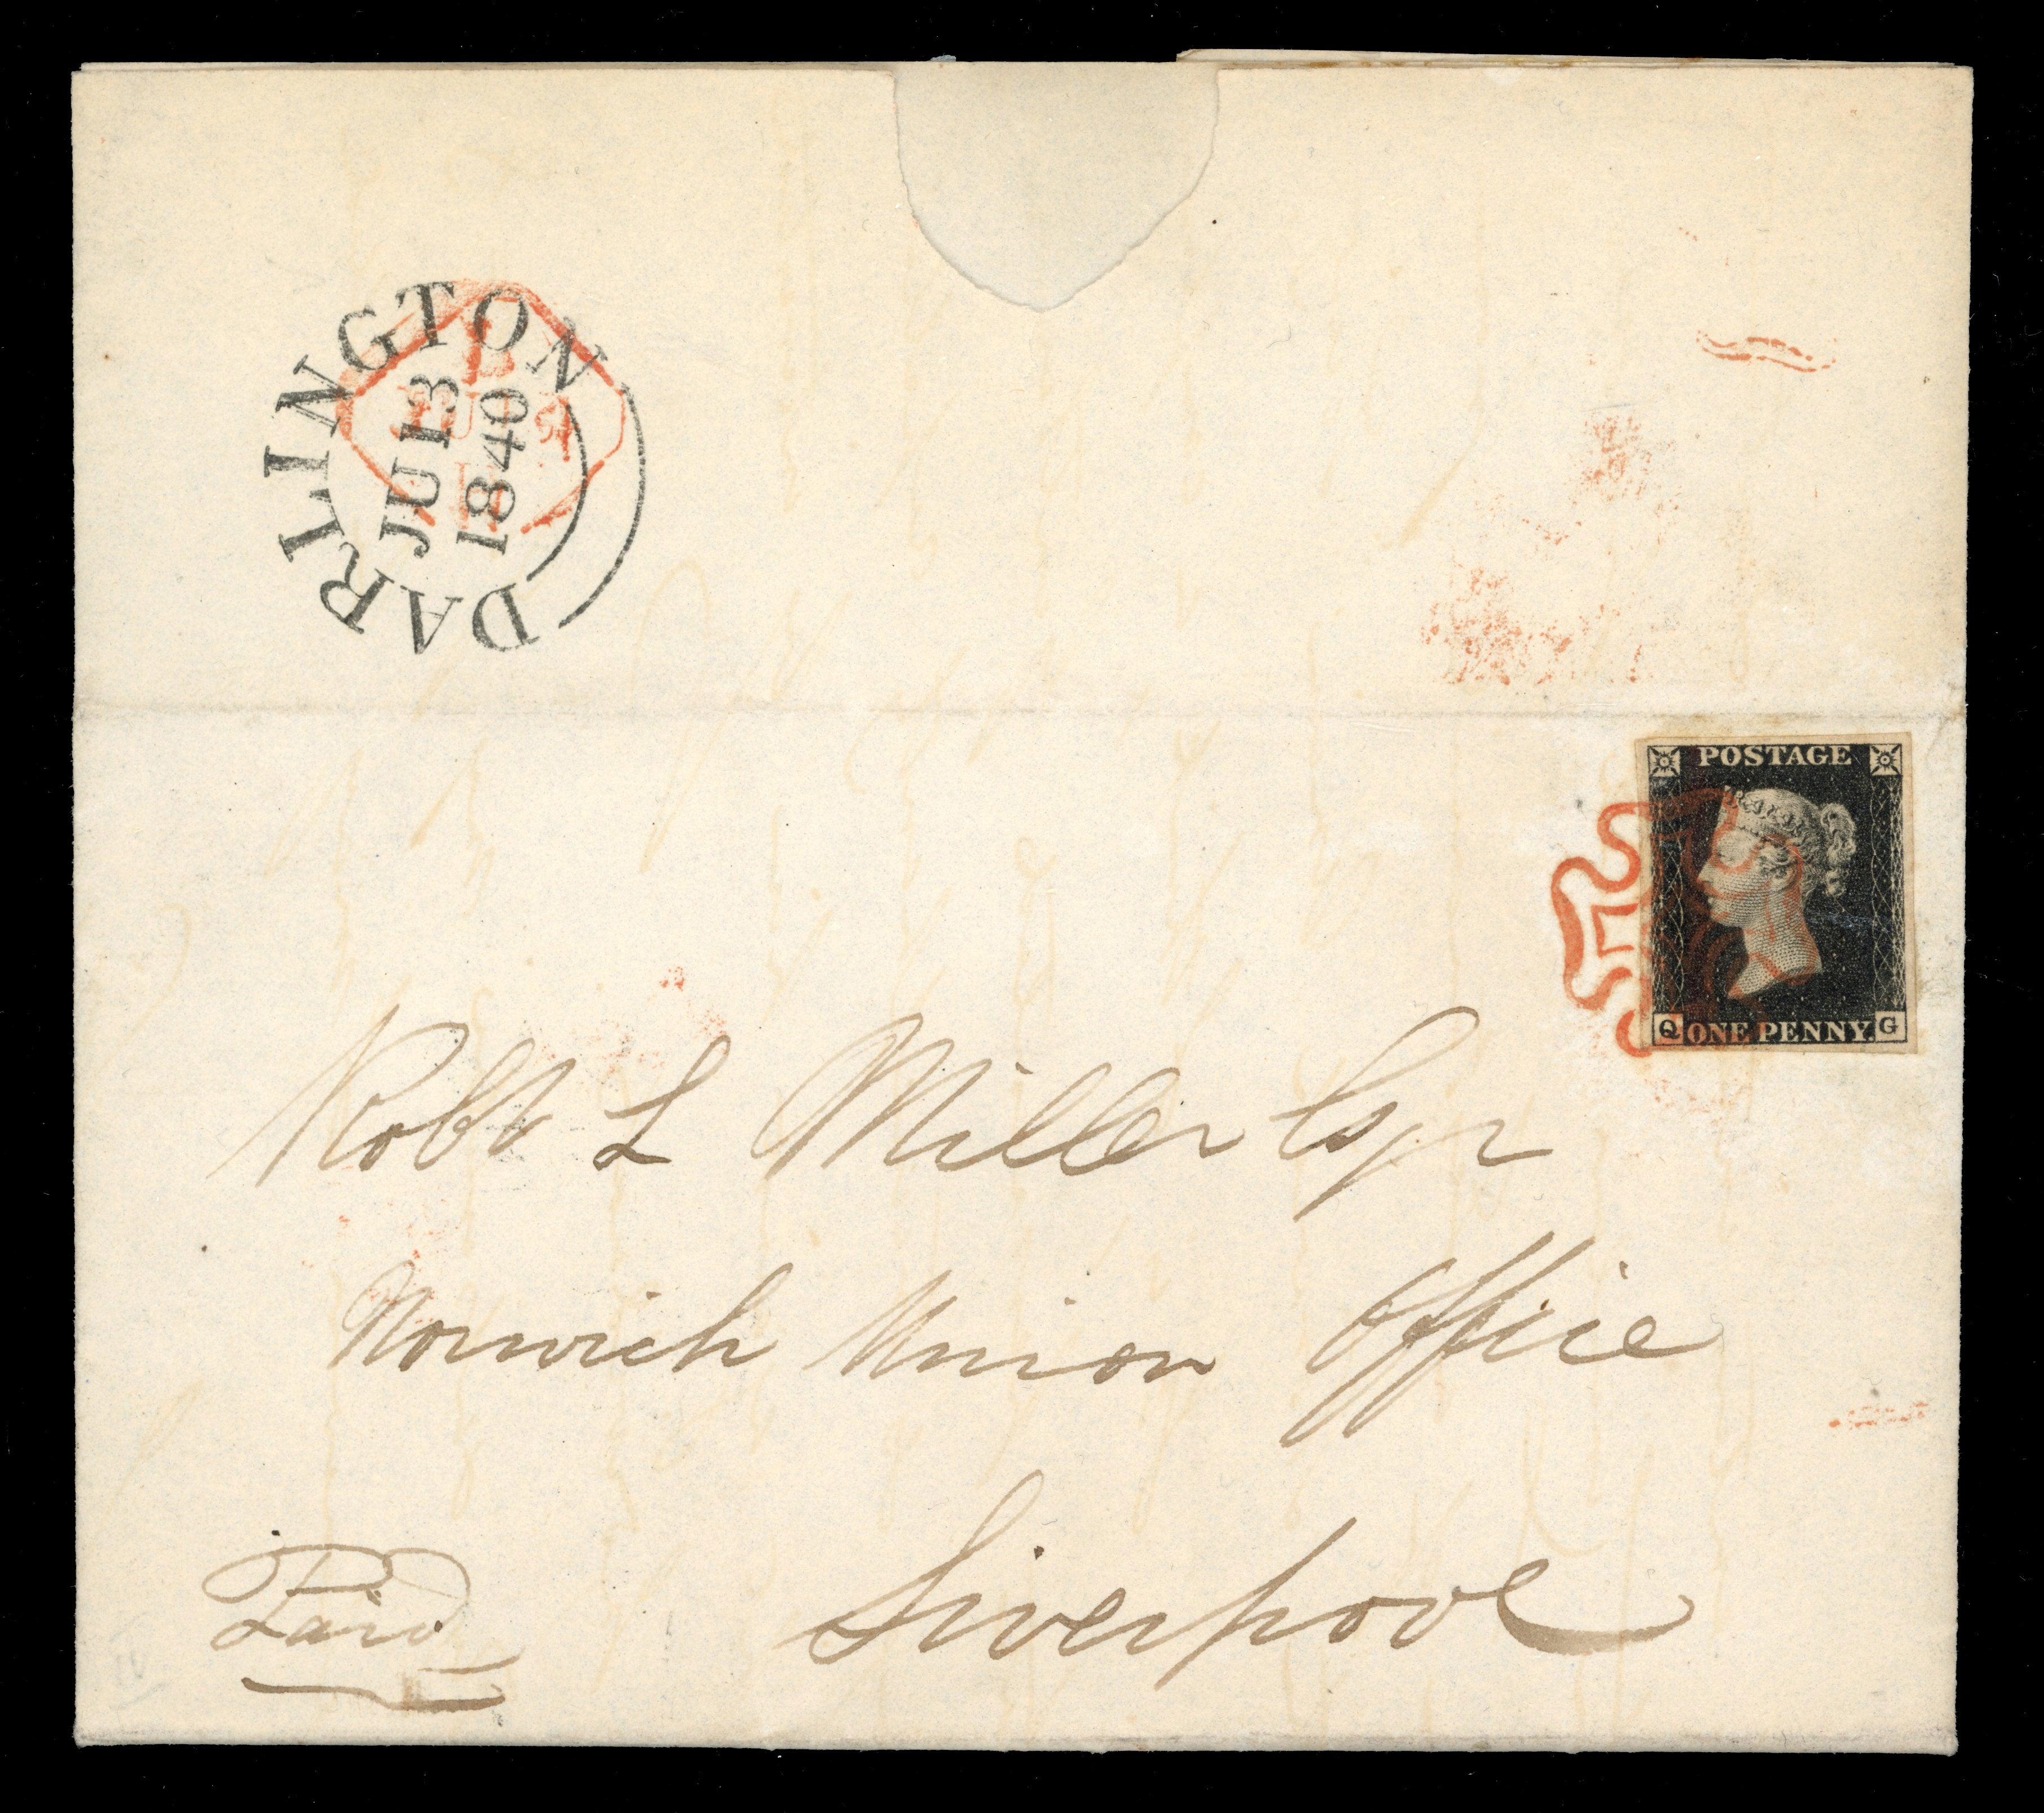 DARLINGTON
JU 13
1840
POSTAGE
Q ONE PENNY. G
Robt L Miller Esqr
Norwich Union Office
Liverpool
Paid